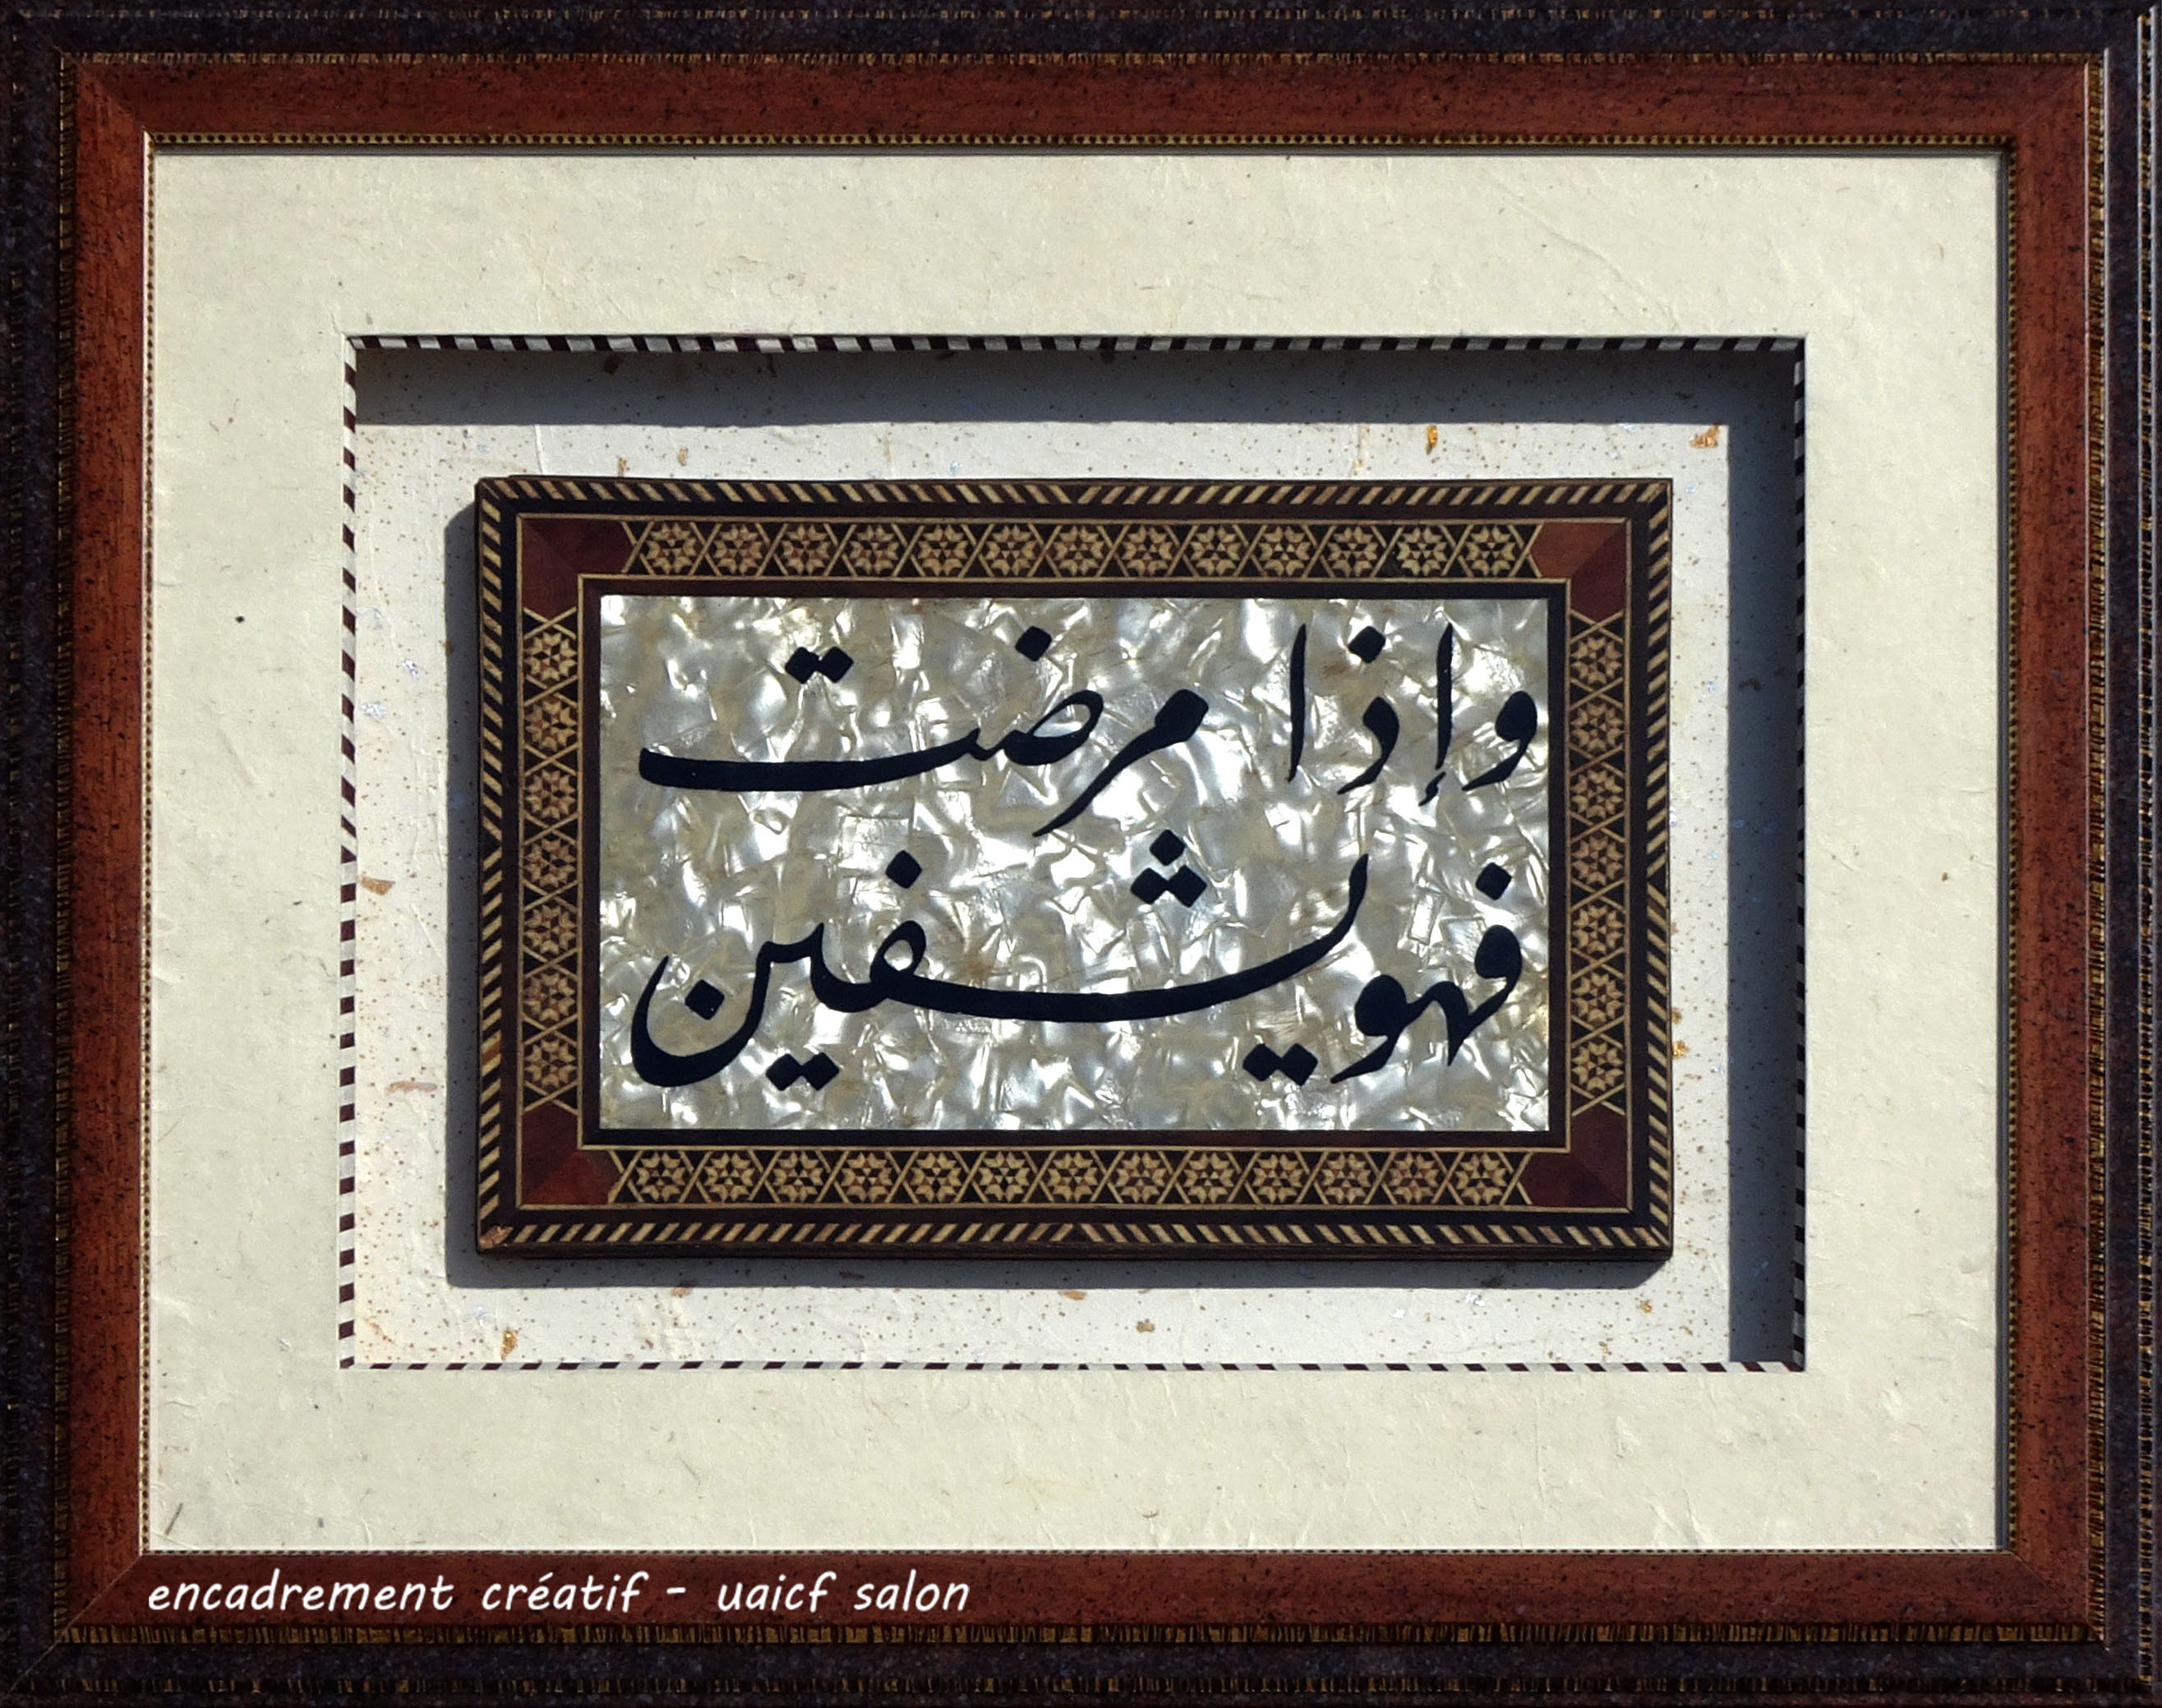 وإذا مرضت
فهو يشفين
encadrement créatif - uaicf salon